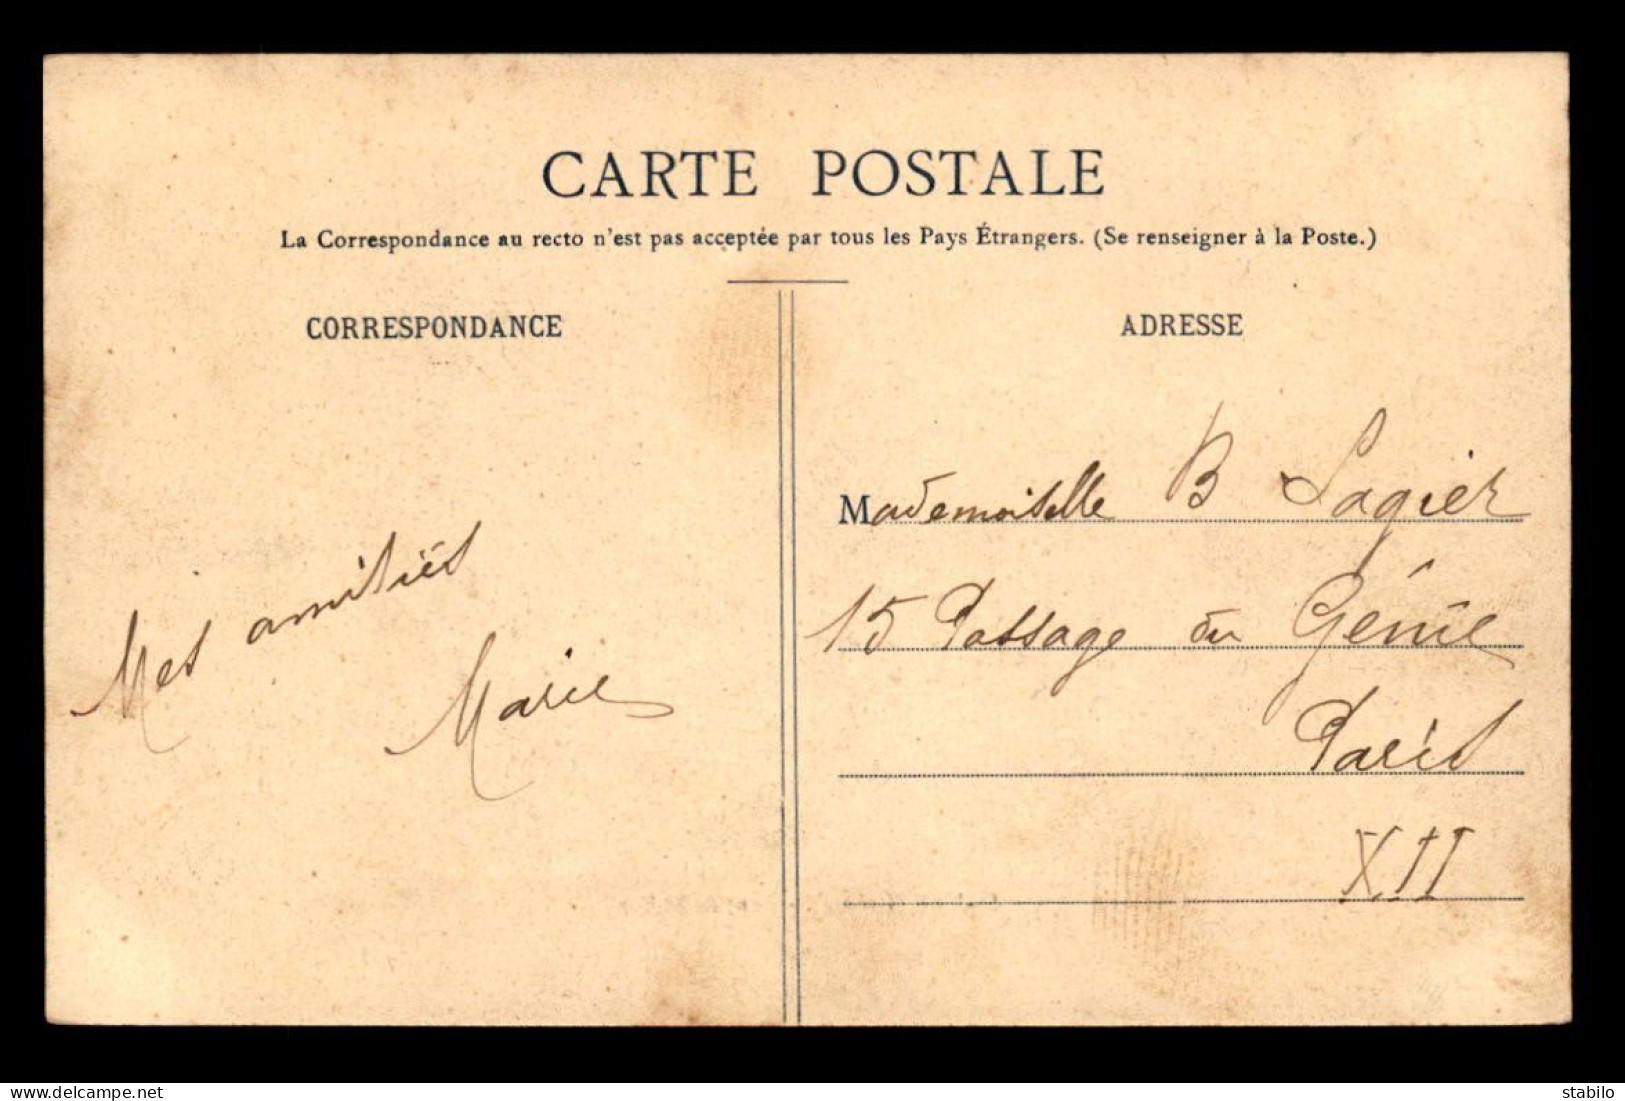 CARTE POSTALE
La Correspondance au recto n'est pas acceptée par tous les Pays Étrangers. (Se renseigner à la Poste.)
CORRESPONDANCE
Mes amitiés
Marie
ADRESSE
Mademoiselle B Lagier
15 Passage du Génie
Paris
XII
delcampe.net
stabilo